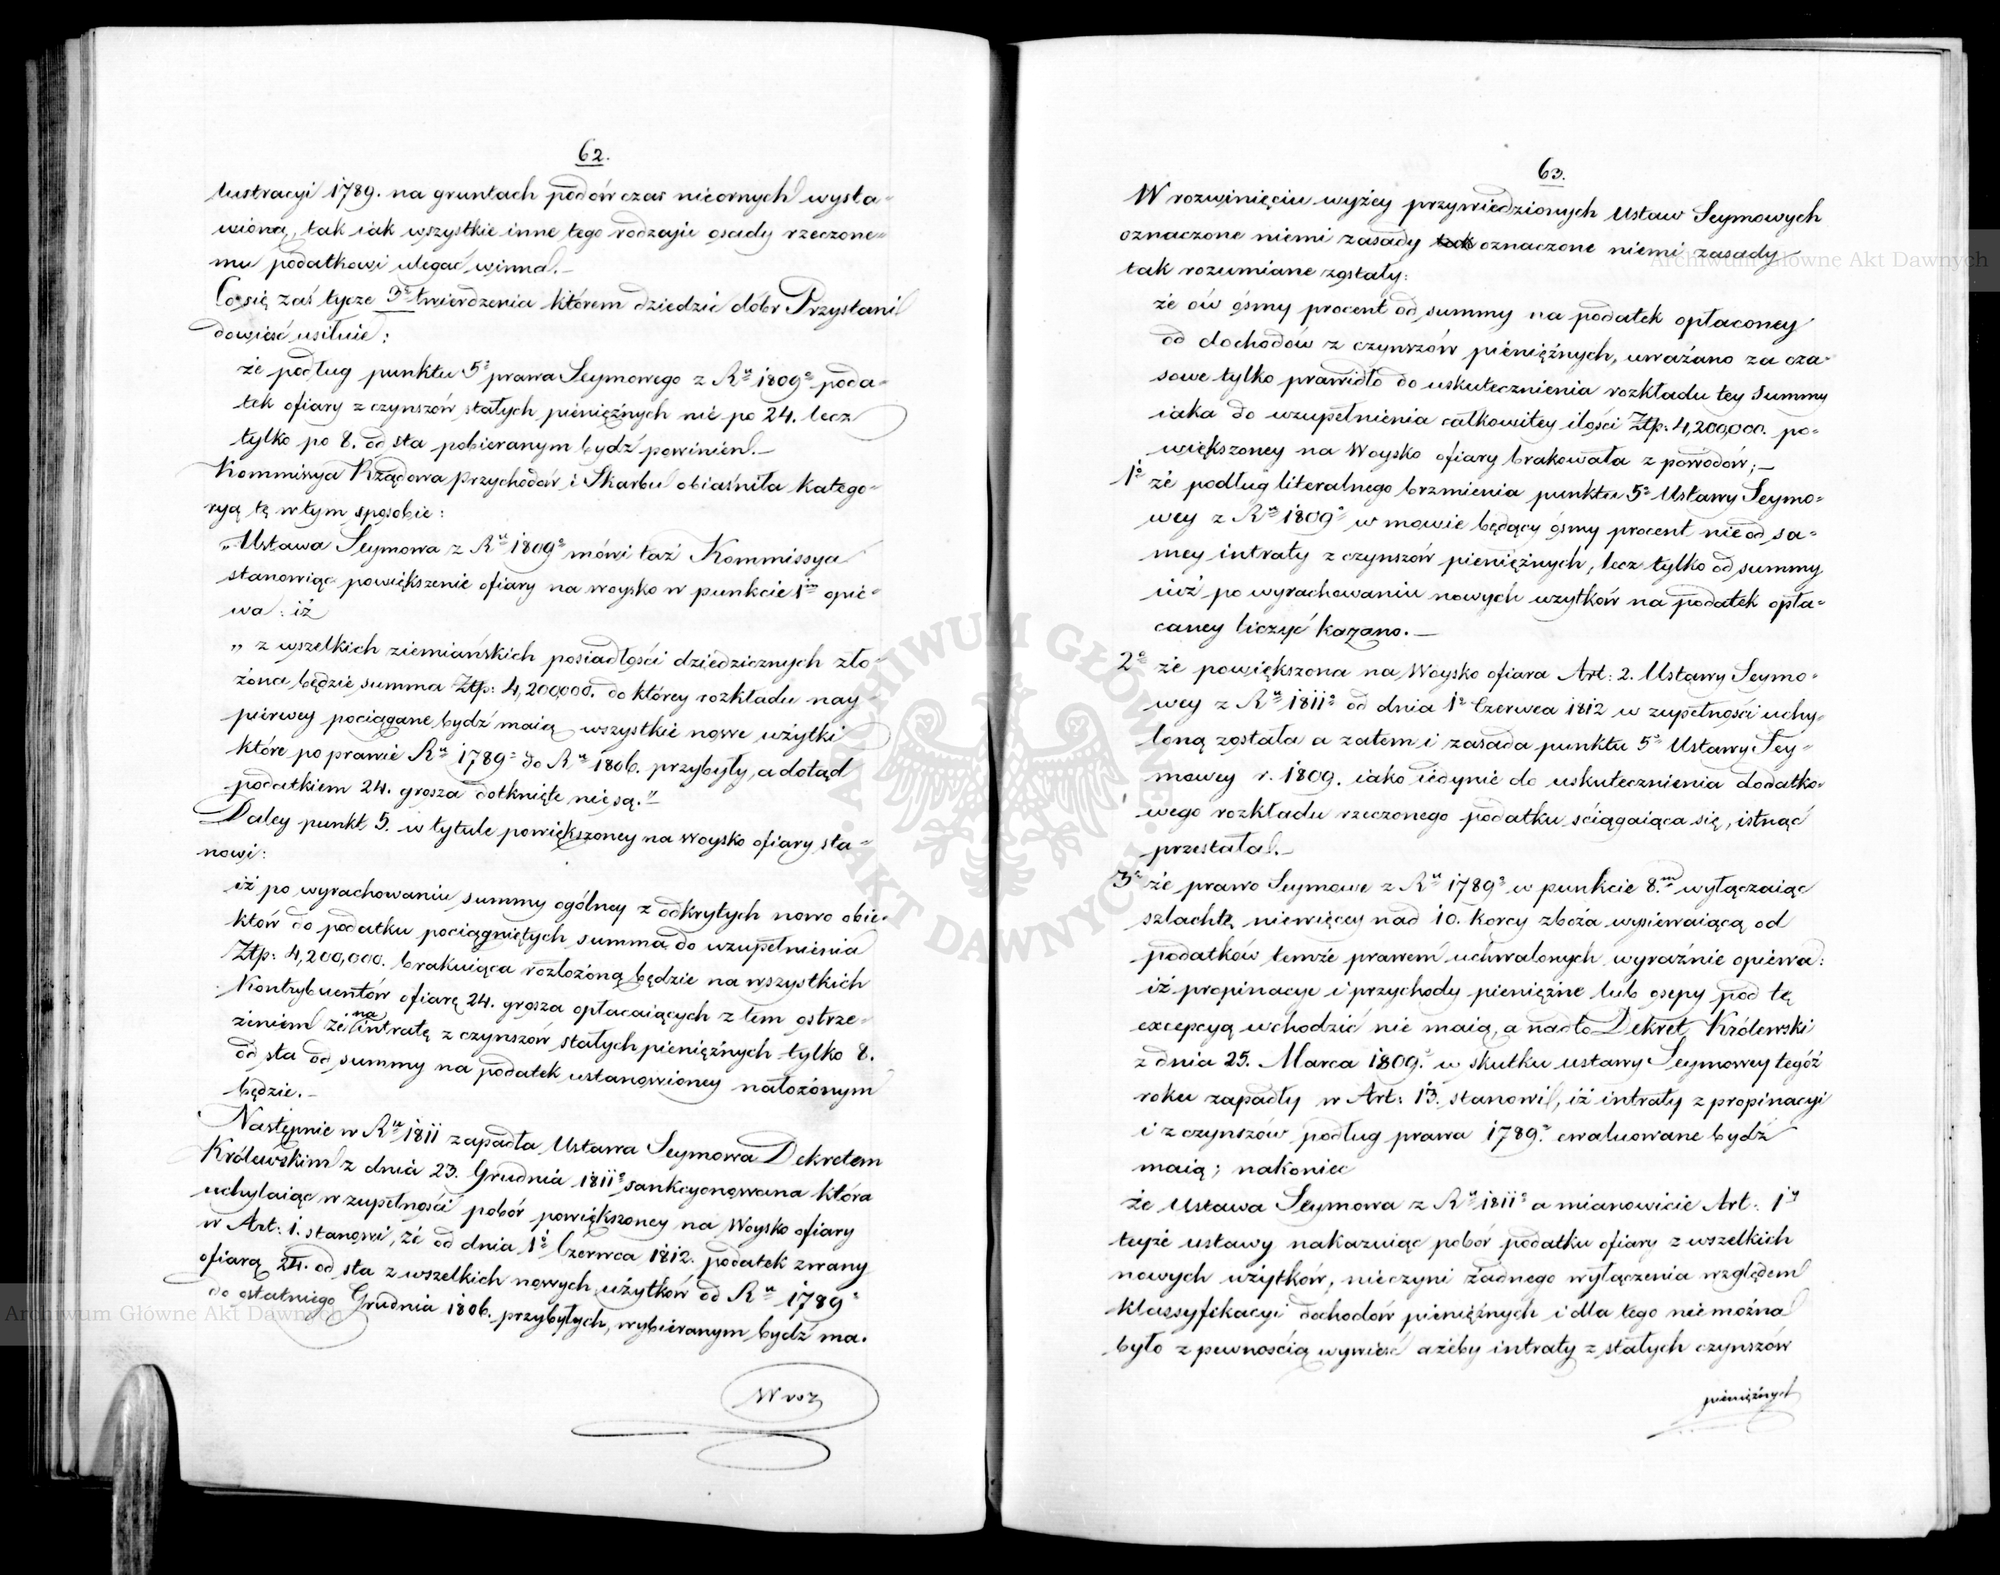 62.
lustracyi 1789. na gruntach podówczas nieornych wysta-
wioną, tak iak wszystkie inne tego rodzaiu osady rzeczone-
mu podatkowi ulegać winna.—
Co się zaś tycze 3º twierdzenia którem dziedzic dóbr Przystani
dowieść usiłuie:
że podług punktu 5º prawa Seymowego z Rº 1809º poda-
tek ofiary z czynszów stałych pieniężnych nie po 24. lecz
tylko po 8. od sta pobieranym bydź powinien.—
Kommissya Rządowa Przychodów i Skarbu obiaśniła katego-
ryą tę w tym sposobie:
„Ustawa Seymowa z Rº 1809º mówi taż Kommissya
stanowiąc powiększenie ofiary na woysko w punkcie 1m opie-
wa: iż
„z wszelkich ziemiańskich posiadłości dziedzicznych zło-
żona będzie summa Ztp: 4,200,000. do którey rozkładu nay-
pierwey pociągane bydź maią wszystkie nowe użytki
które po prawie Ru 1789º do Ru 1806. przybyły, a dotąd
podatkiem 24. grosza dotknięte nie są."
Daley punkt 5. w tytule powiększoney na Woysko ofiary sta-
nowi:
iż po wyrachowaniu summy ogólney z odkrytych nowo obie-
któw do podatku pociągniętych summa do uzupełnienia
Ztp: 4,200,000. brakuiąca rozłożoną będzie na wszystkich
Kontrybuentów ofiarę 24. grosza opłacaiących z tem ostrze-
żeniem że na intratę z czynszów stałych pieniężnych tylko 8.
od sta od summy na podatek ustanowioney nałożonym
będzie.—
Następnie w Ru 1811 zapadła Ustawa Seymowa Dekretem
Królewskim z dnia 23. Grudnia 1811º sankcyonowana która
uchylaiąc w zupełności pobór powiększoney na Woysko ofiary
w Art: 1. stanowi, że od dnia 1º Czerwca 1812. podatek zwany
ofiarą 24. od sta z wszelkich nowych użytków od Ru 1789º
do ostatniego Grudnia 1806. przybyłych, wybieranym bydź ma.
W roz
63.
W rozwinięciu wyżey przywiedzionych Ustaw Seymowych
oznaczone niemi zasady tak oznaczone niemi zasady
tak rozumiane zostały:
że ów ósmy procent od summy na podatek opłaconey
od dochodów z czynszów pieniężnych, uważano za cza-
sowe tylko prawidło do uskutecznienia rozkładu tey summy
iaka do uzupełnienia całkowitey ilości Ztp: 4,200,000. po-
większoney na Woysko ofiary brakowała z powodów;—
1º że podług literalnego brzmienia punktu 5º Ustawy Seymo-
wey z Ru 1809º w mowie będący ósmy procent nie od sa-
mey intraty z czynszów pieniężnych, lecz tylko od summy
iuż po wyrachowaniu nowych uzytków na podatek opła-
caney liczyć kazano.—
2º że powiększona na Woysko ofiara Art: 2. Ustawy Seymo-
wey z Ru 1811º od dnia 1º Czerwca 1812 w zupełności uchy-
loną została a zatem i zasada punktu 5º Ustawy Sey-
mowey r. 1809. iako iedynie do uskutecznienia dodatko-
wego rozkładu rzeczonego podatku ściągaiąca się, istnąć
przestała.—
3º że prawo Seymowe z Ru 1789º w punkcie 8.m wyłączaiąc
szlachtę niewięcey nad 10. korcy zboża wysiewaiącą od
podatków temże prawem uchwalonych wyraźnie opiewa:
iż propinacye i przychody pieniężne lub osepy pod tę
excepcyą wchodzić nie maią, a nadto Dekret Królewski
z dnia 25. Marca 1809.º w skutku ustawy Seymowey tegóż
roku zapadły w Art: 13. stanowił, iż intraty z propinacyi
i z czynszów podług prawa 1789.º ewaluowane bydź
maią; nakoniec
że Ustawa Seymowa z Ru 1811º a mianowicie Art: 1y
teyże ustawy nakazuiąc pobór podatku ofiary z wszelkich
nowych użytków, nieczyni żadnego wyłączenia względem
klassyfikacyi dochodów pieniężnych i dla tego nie można
było z pewnością wywieść ażeby intraty z stałych czynszów
pieniężnych
ARCHIWUM GŁÓWNE AKT DAWNYCH
Archiwum Główne Akt Dawnych
Archiwum Główne Akt Dawnych